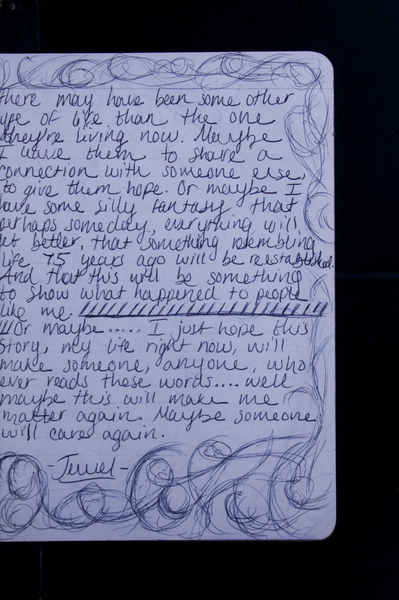 there may have been some other
type of life than the one
they're living now. Maybe
I leave them to share a
connection with someone else,
to give them hope. Or maybe I
have some silly fantasy that
perhaps someday, everything will
get better, that something resembling
life 75 years ago will be reestablished.
And that this will be something
to show what happened to people
like me.
Or maybe..... I just hope this
story, my life right now, will
make someone, anyone, who
ever reads these words.... well
maybe this will make me
matter again. Maybe someone
will care again.
-Jewel-